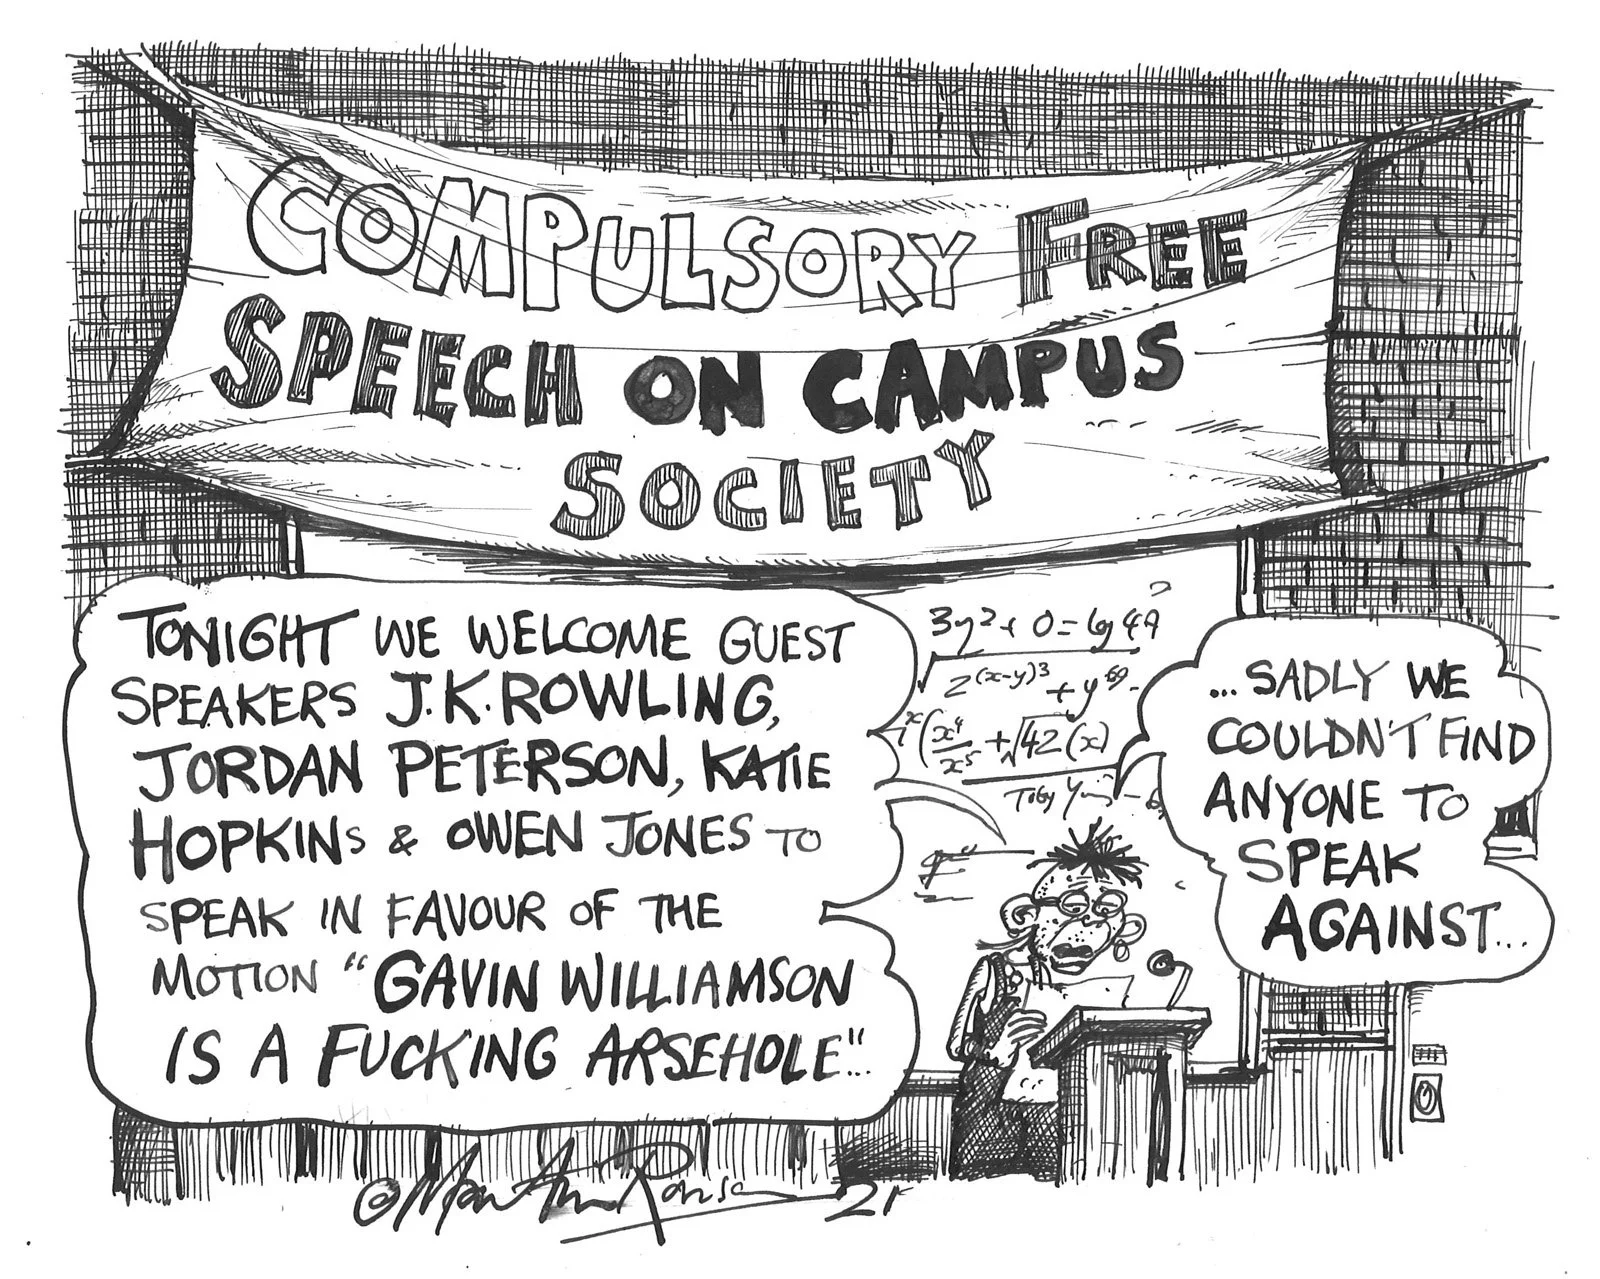 COMPULSORY FREE
SPEECH ON CAMPUS
SOCIETY
TONIGHT WE WELCOME GUEST
SPEAKERS J.K.ROWLING,
JORDAN PETERSON, KATIE
HOPKINS & OWEN JONES TO
SPEAK IN FAVOUR OF THE
MOTION "GAVIN WILLIAMSON
IS A FUCKING ARSEHOLE"...
3y²+ 0=log 49
2(x-y)³ + y⁶⁹ -
(x⁴/x⁵ + √42 (x)
TOBY
...SADLY WE
COULDN'T FIND
ANYONE TO
SPEAK
AGAINST...
© Martin Rowson 21